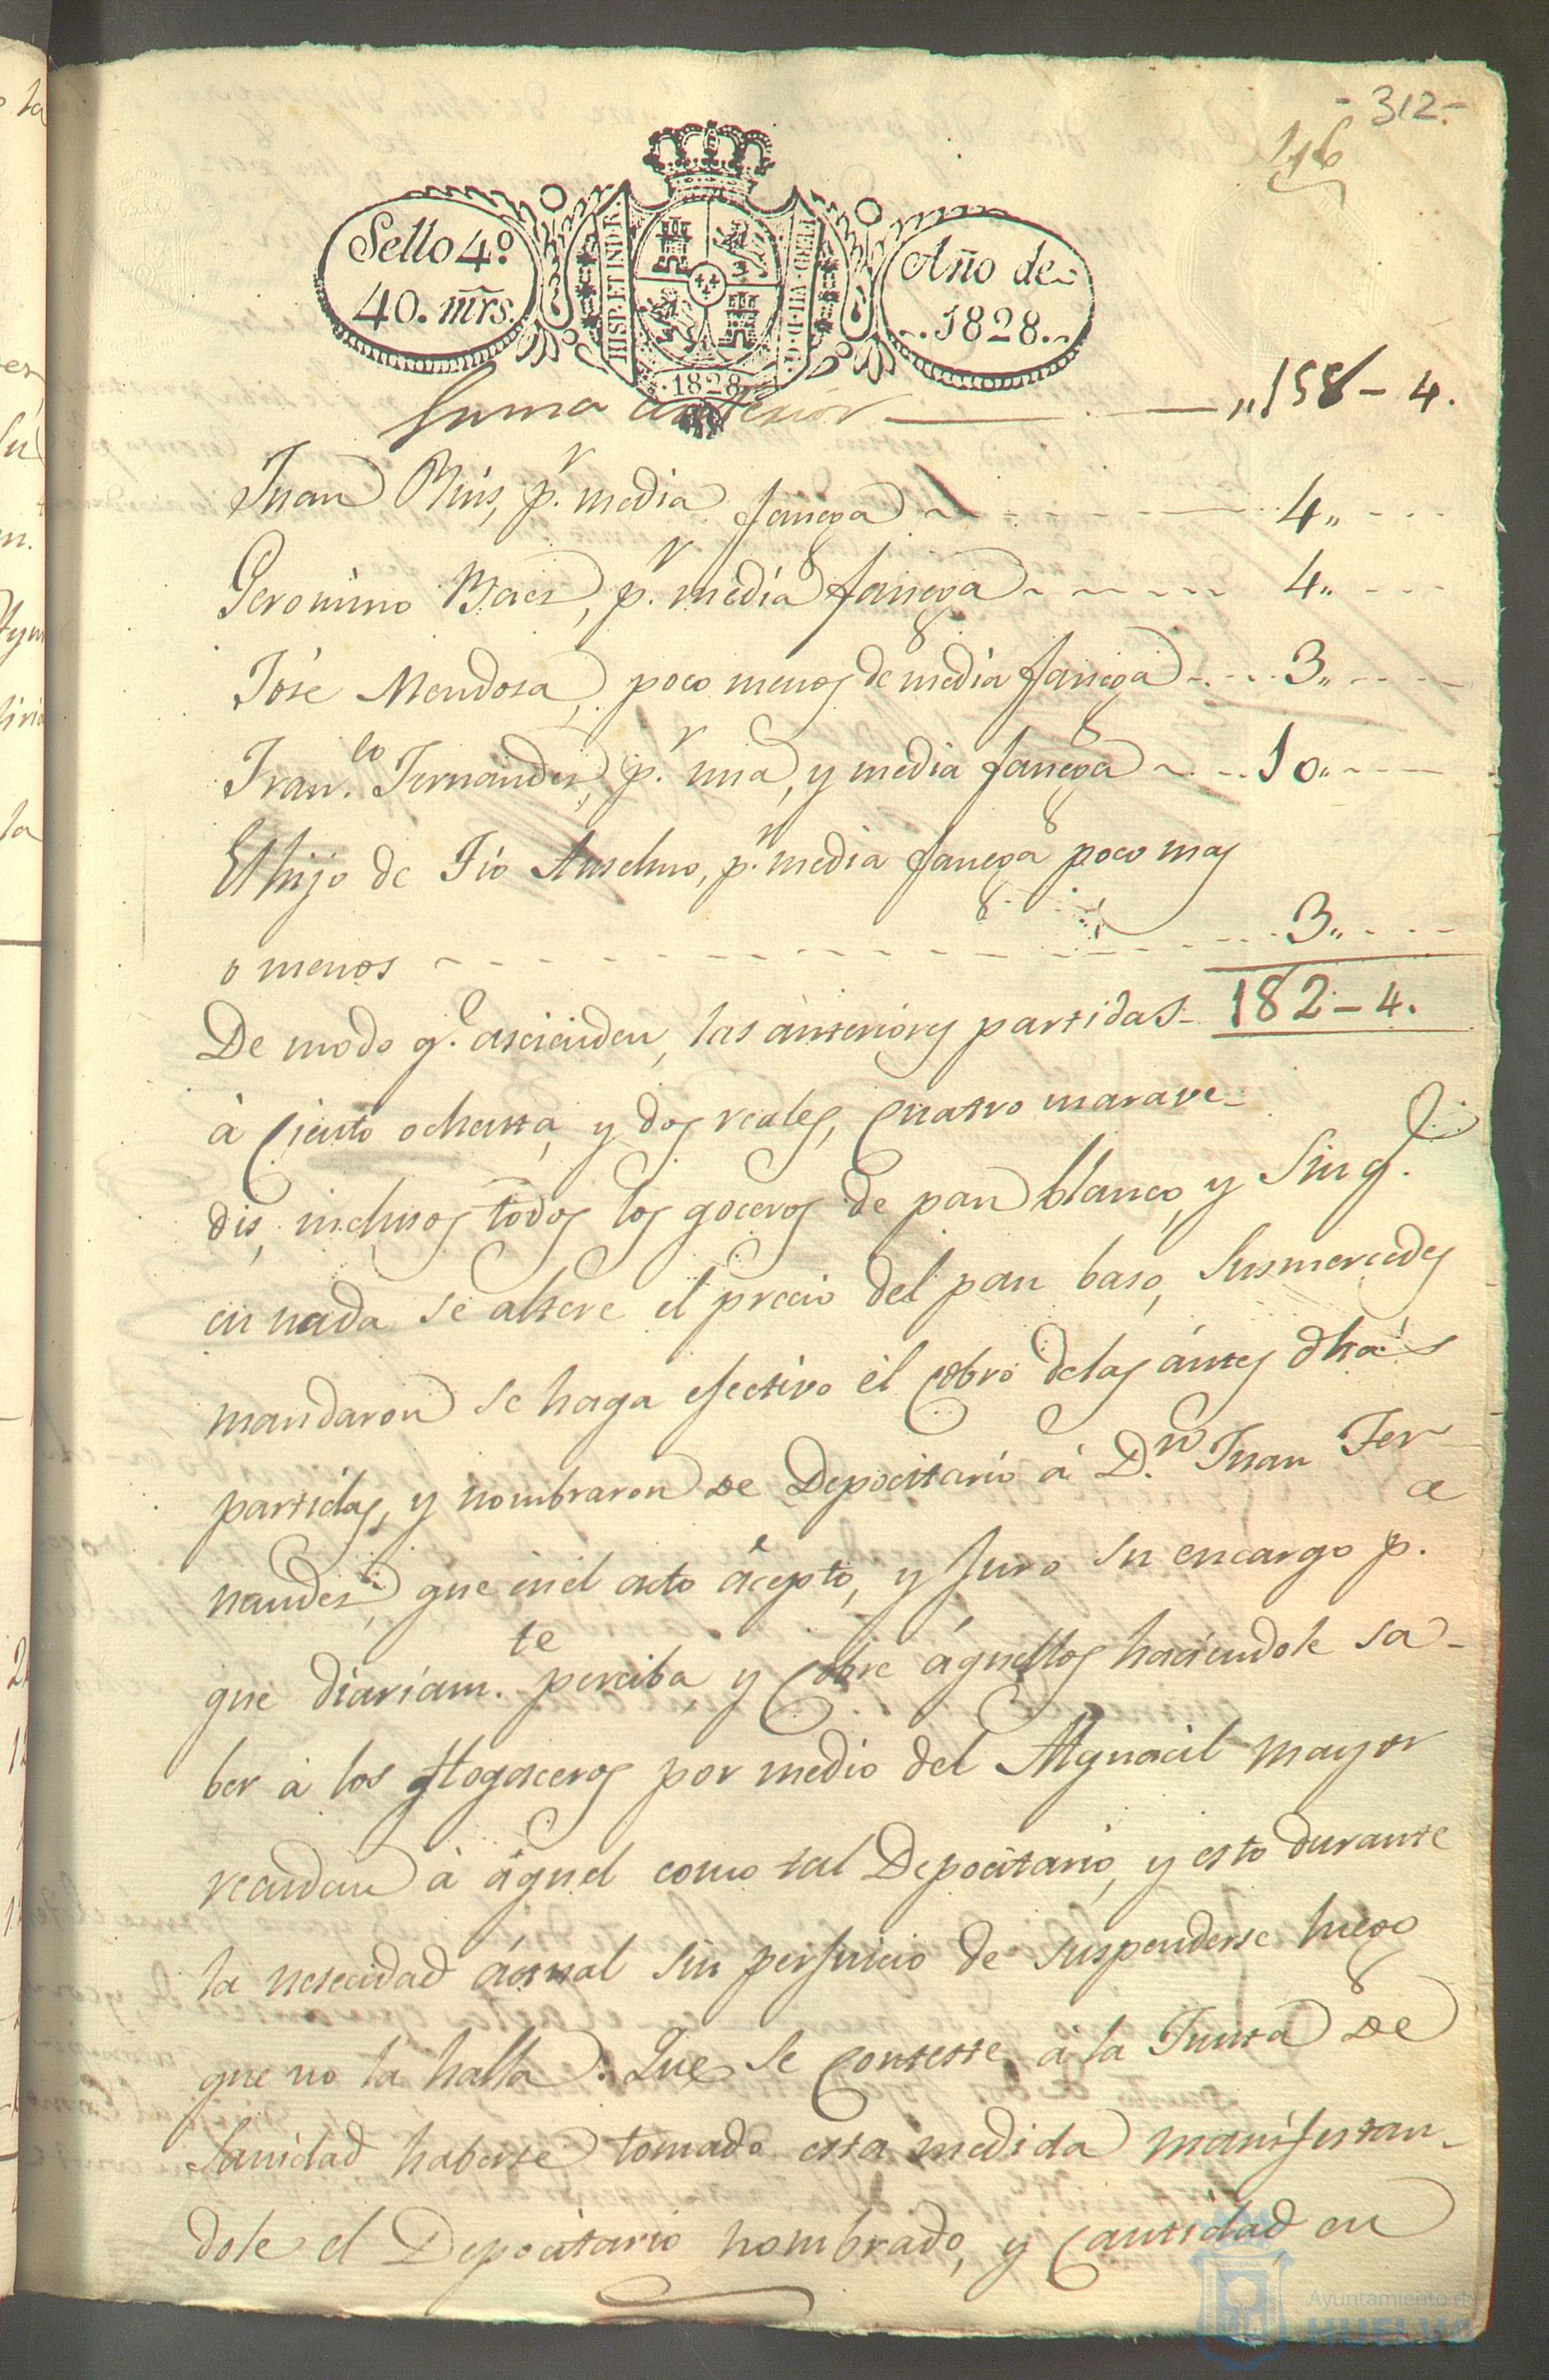 -312.-
116
Sello 4º
40. mrs.
HISP. ET IND. R.
FERD. VII. D. G.
Año de
1828.
.1828.
Suma anterior ,,158-4.
Juan Ruis, p.r media fanega 4,,
Geronimo Baes, p.r media fanega 4,,
Jose Mendosa, poco menos de media fanega 3,,
Fran.co Fernandes, p.r una, y media fanega 10,,
El hijo de Tio Anselmo, p.r media fanega poco mas
o menos 3,,
De modo q.e ascienden, las anteriores partidas 182-4.
à Ciento ochenta, y dos reales, Cuatro marave-
dis, inclusos todos los goceros de pan blanco, y sin q.e
en nada se altere el precio del pan baso, Susmercedes
mandaron se haga efectivo el Cobro delas ántes dhas
partidas, y nombraron de Depocitario á D.n Juan Fer
nandes, que en el acto ácepto, y Juro su encargo p.a
que diariam.te perciba, y Cobre áquellos haciendole sa-
ber à los Hogaceros por medio del Alguacil mayor
reandan à áquel como tal Depocitario, y esto durante
la nesecidad áctual sin perjuicio de suspenderse luego
que no la halla. Que se Conteste à la Junta de
Sanidad haberse tomado esta medida manifestan-
dole el Depocitario nombrado, y Cantidad en
Ayuntamiento de
HUELVA